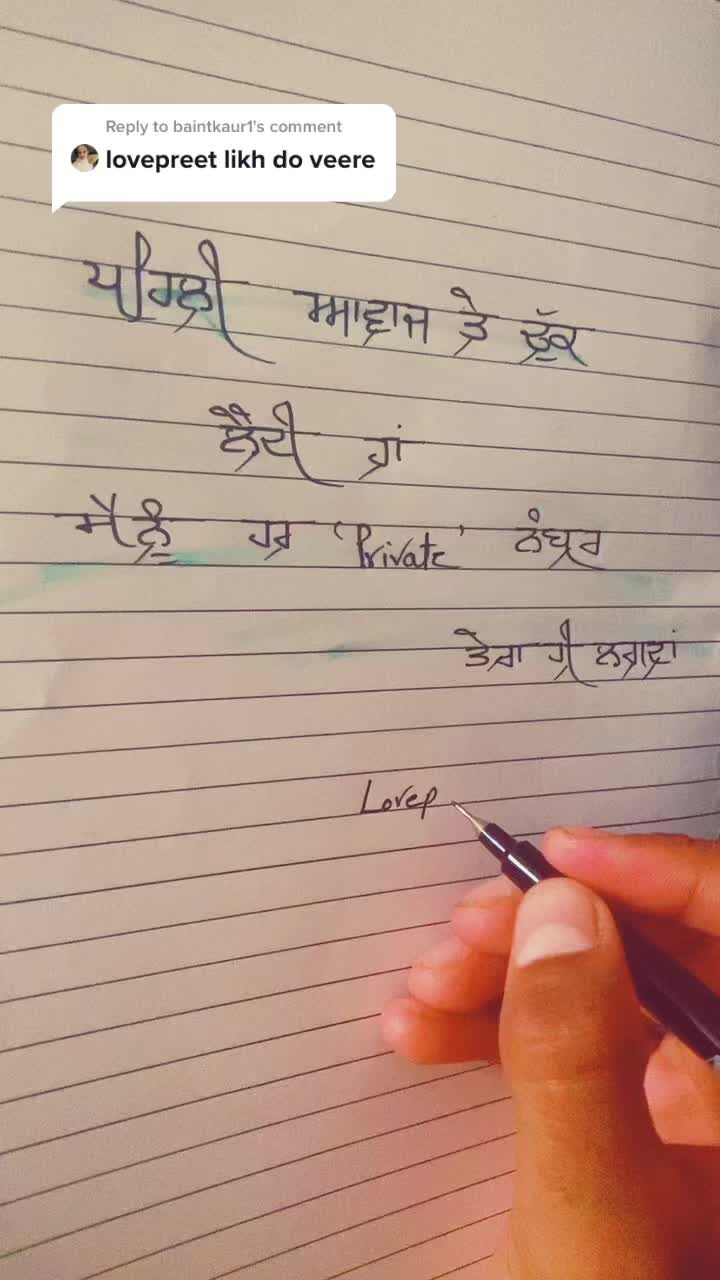 Reply to baintkaur1's comment
lovepreet likh do veere
ਆਵਾਜ਼ ਤੇ ਚੁੱਕ
ਲੈਂਦੀ ਹਾਂ
ਮੈਨੂੰ ਹਰ 'Private' ਨੰਬਰ
ਤੇਰਾ ਹੀ ਲਗਦਾ
Lovep